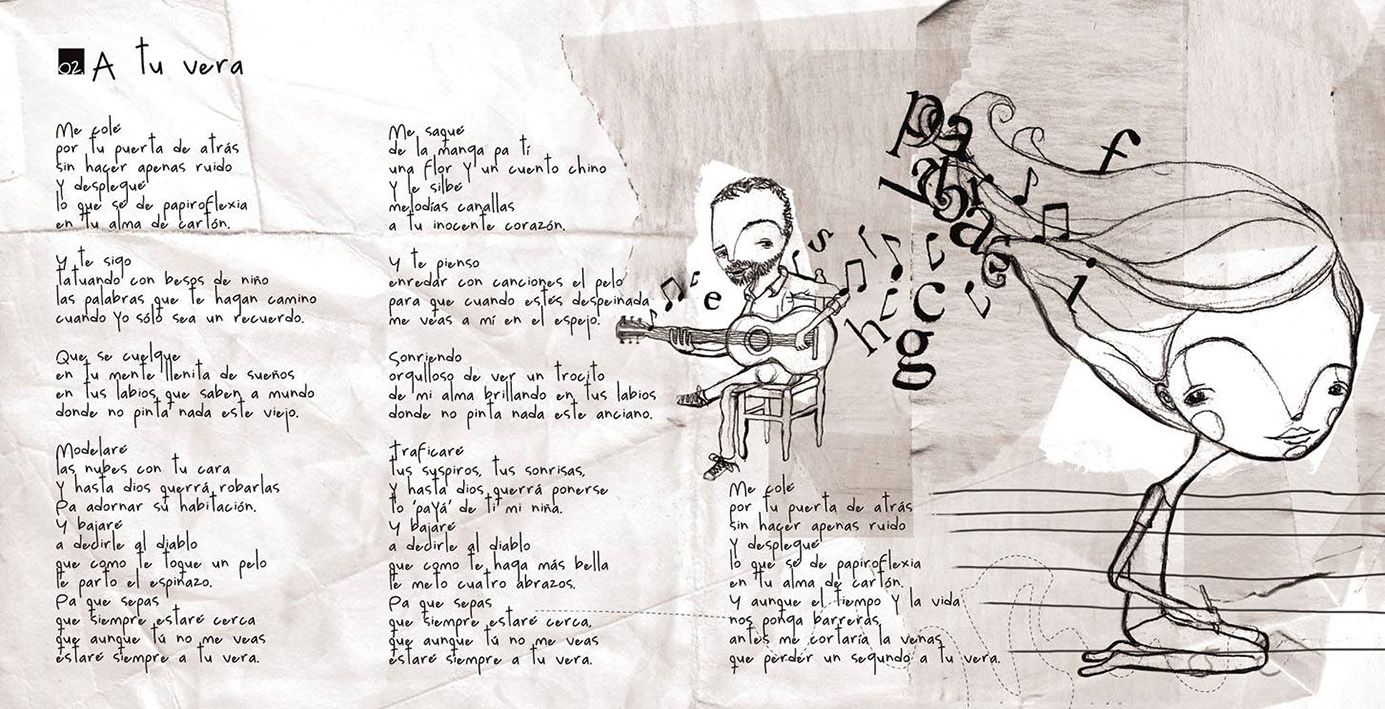 02 A tu vera
Me colé
por tu puerta de atrás
sin hacer apenas ruido
y desplegué
lo que sé de papiroflexia
en tu alma de cartón.
Y te sigo
tatuando con besos de niño
las palabras que te hagan camino
cuando yo sólo sea un recuerdo.
Que se cuelgue
en tu mente llenita de sueños
en tus labios que saben a mundo
donde no pinta nada este viejo.
Modelaré
las nubes con tu cara
y hasta dios querrá robarlas
pa adornar su habitación.
Y bajaré
a decirle al diablo
que como te toque un pelo
le parto el espinazo.
Pa que sepas
que siempre estaré cerca
que aunque tú no me veas
estaré siempre a tu vera.
Me saqué
de la manga pa ti
una flor y un cuento chino
y le silbé
melodías canallas
a tu inocente corazón.
Y te pienso
enredar con canciones el pelo
para que cuando estés despeinada
me veas a mí en el espejo.
Sonriendo
orgulloso de ver un trocito
de mi alma brillando en tus labios
donde no pinta nada este anciano.
Traficaré
tus suspiros, tus sonrisas,
y hasta dios querrá ponerse
to 'payá' de ti mi niña.
Y bajaré
a decirle al diablo
que como te haga más bella
le meto cuatro abrazos.
Pa que sepas
que siempre estaré cerca,
que aunque tú no me veas
estaré siempre a tu vera.
Me colé
por tu puerta de atrás
sin hacer apenas ruido
y desplegué
lo que sé de papiroflexia
en tu alma de cartón.
Y aunque el tiempo y la vida
nos ponga barreras,
antes me cortaría la venas
que perder un segundo a tu vera.
palabras
f
i
s
e
h i c
g